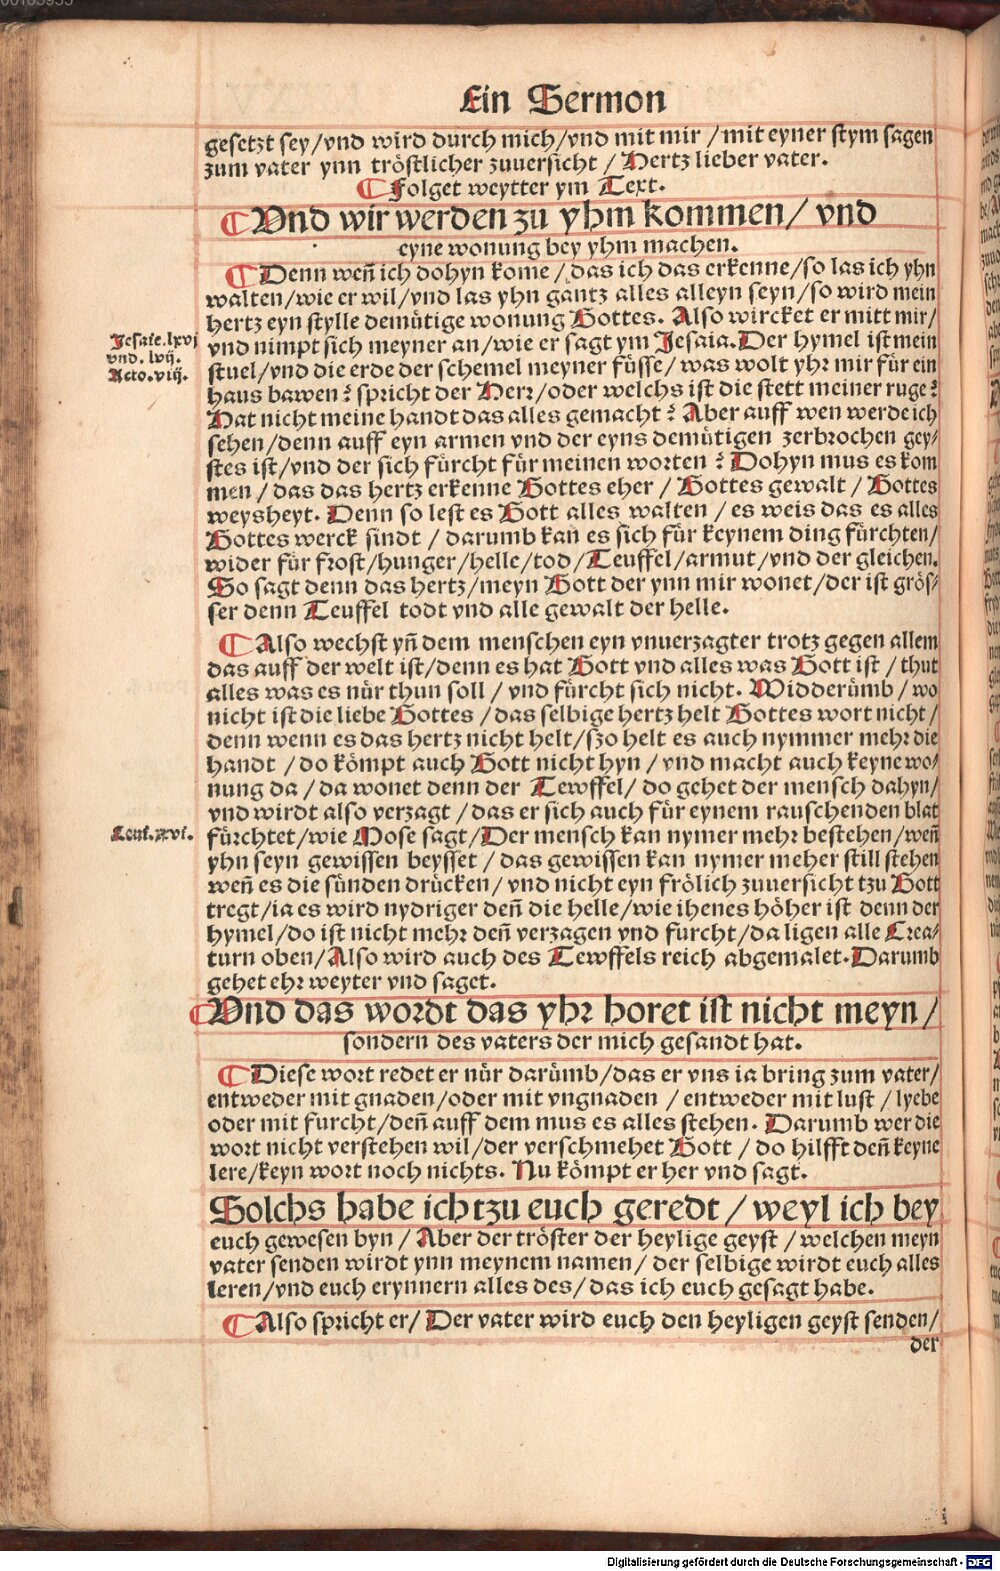 Ein Sermon
gesetzt sey/vnd wird durch mich/vnd mit mir/mit eyner stym sagen
zum vater ynn tröstlicher zuuersicht/Hertz lieber vater.
¶ Folget weytter ym Text.
¶ Vnd wir werden zu yhm kommen/ vnd
eyne wonung bey yhm machen.
¶ Denn weñ ich dohyn kome/das ich das erkenne/so las ich yhn
walten/wie er wil/vnd las yhn gantz alles alleyn seyn/so wird mein
hertz eyn stylle demütige wonung Gottes. Also wircket er mitt mir/
Jesaie.lxvj
vnd nimpt sich meyner an/wie er sagt ym Jesaia. Der hymel ist mein
vnd. lvij.
stuel/vnd die erde der schemel meyner füsse/was wolt yhr mir für ein
Acto.viij.
haus bawen? spricht der Herr/oder welchs ist die stett meiner ruge?
Hat nicht meine handt das alles gemacht? Aber auff wen werde ich
sehen/denn auff eyn armen vnd der eyns demütigen zerbrochen gey/
stes ist/vnd der sich fürcht für meinen worten? Dohyn mus es kom
men/das das hertz erkenne Gottes eher/Gottes gewalt/Gottes
weysheyt. Denn so lest es Gott alles walten/es weis das es alles
Gottes werck sindt/darumb kan es sich für keynem ding fürchten/
wider für frost/hunger/helle/tod/Teuffel/armut/vnd der gleichen.
So sagt denn das hertz/meyn Gott der ynn mir wonet/der ist grös/
ser denn Teuffel todt vnd alle gewalt der helle.
¶ Also wechst yñ dem menschen eyn vnuerzagter trotz gegen allem
das auff der welt ist/denn es hat Gott vnd alles was Gott ist/thut
alles was es nür thun soll/vnd fürcht sich nicht. Widderümb/wo
nicht ist die liebe Gottes/das selbige hertz helt Gottes wort nicht/
denn wenn es das hertz nicht helt/szo helt es auch nymmer mehr die
handt/do kömpt auch Gott nicht hyn/vnd macht auch keyne wo/
nung da/da wonet denn der Tewffel/do gehet der mensch dahyn/
vnd wirdt also verzagt/das er sich auch für eynem rauschenden blat
Leui.xxvi.
fürchtet/wie Mose sagt/Der mensch kan nymer mehr bestehen/weñ
yhn seyn gewissen beysset/das gewissen kan nymer meher still stehen
weñ es die sünden drücken/vnd nicht eyn frölich zuuersicht tzu Gott
tregt/ia es wird nydriger deñ die helle/wie ihenes höher ist denn der
hymel/do ist nicht mehr deñ verzagen vnd furcht/da ligen alle Crea/
turn oben/Also wird auch des Tewffels reich abgemalet. Darumb
gehet ehr weyter vnd saget.
¶ Vnd das wordt das yhr horet ist nicht meyn/
sondern des vaters der mich gesandt hat.
¶ Diese wort redet er nür darümb/das er vns ia bring zum vater/
entweder mit gnaden/oder mit vngnaden/entweder mit lust/lyebe
oder mit furcht/deñ auff dem mus es alles stehen. Darumb wer die
wort nicht verstehen wil/der verschmehet Gott/do hilfft deñ keyne
lere/keyn wort noch nichts. Nu kömpt er her vnd sagt.
Solchs habe ich tzu euch geredt/weyl ich bey
euch gewesen byn/Aber der tröster der heylige geyst/welchen meyn
vater senden wirdt ynn meynem namen/der selbige wirdt euch alles
leren/vnd euch erynnern alles des/das ich euch gesagt habe.
¶ Also spricht er/Der vater wird euch den heyligen geyst senden/
der
Digitalisierung gefördert durch die Deutsche Forschungsgemeinschaft - DFG